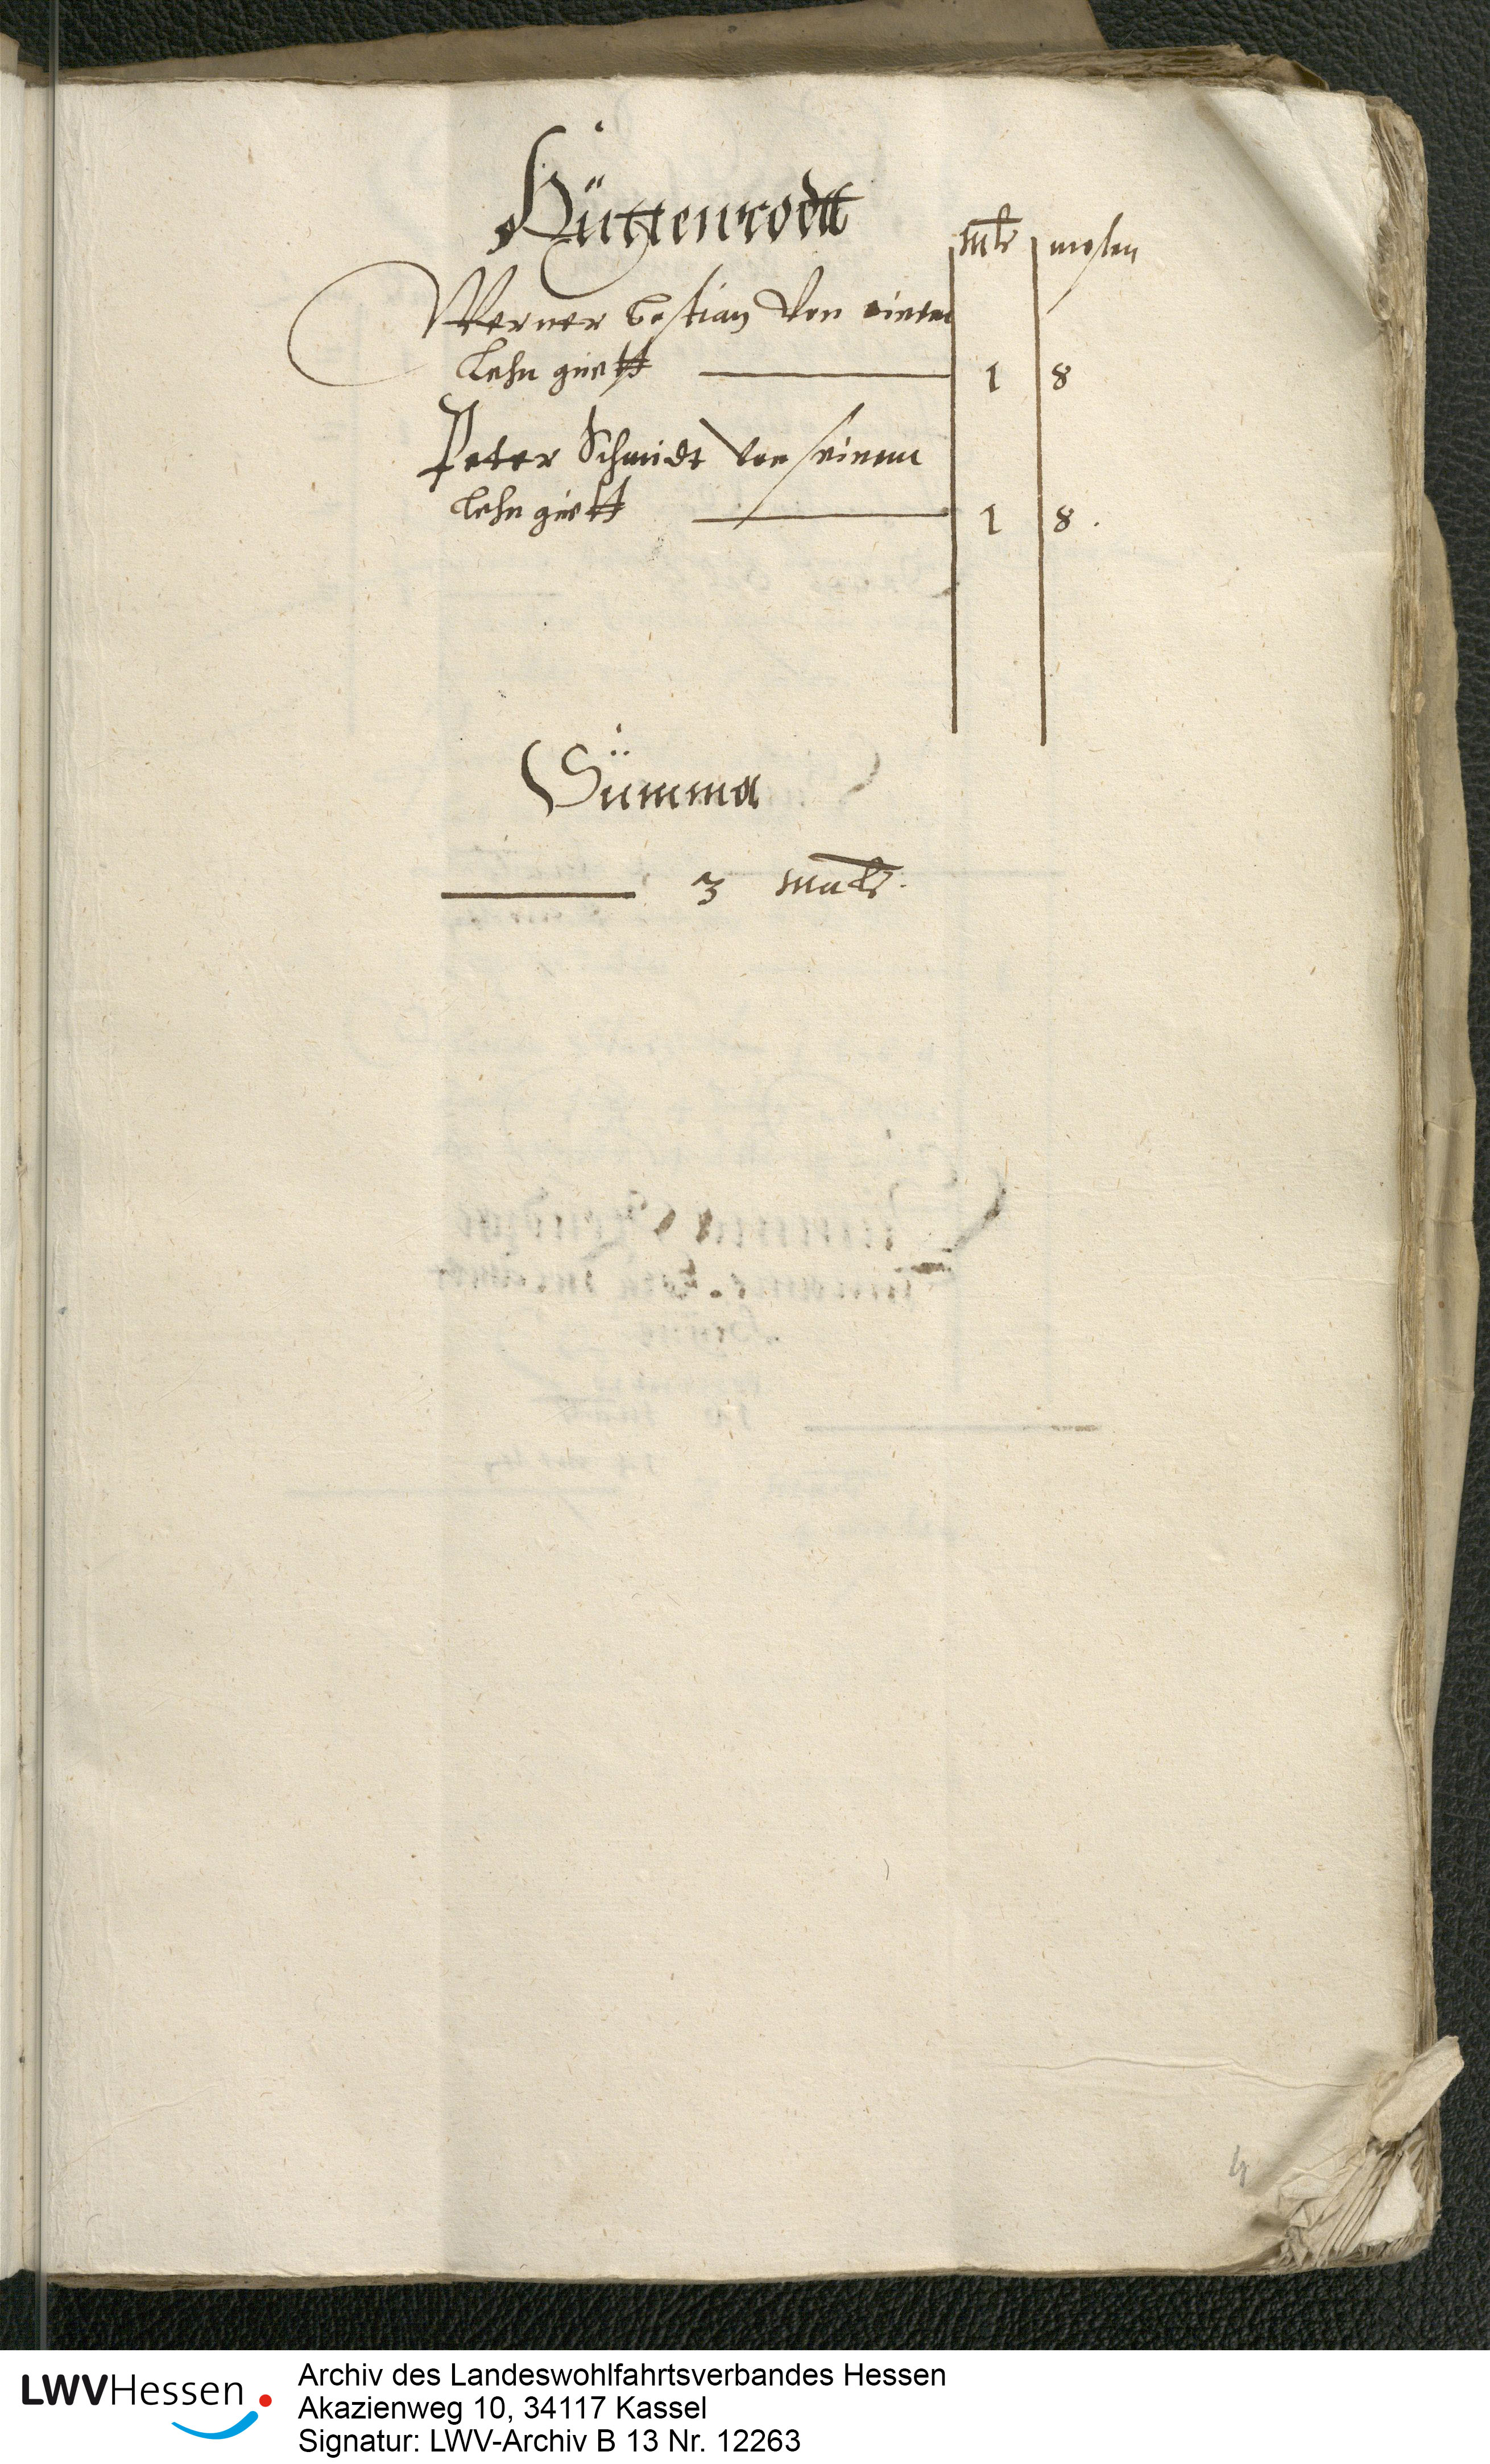 Hüttenrodtt
mlr mesten
Werner Bastian von einem
Lehn guett 1 8
Peter Schmidt von seinem
Lehn guett 1 8.
Sümma
3 malr.
4
LWVHessen
Archiv des Landeswohlfahrtsverbandes Hessen
Akazienweg 10, 34117 Kassel
Signatur: LWV-Archiv B 13 Nr. 12263